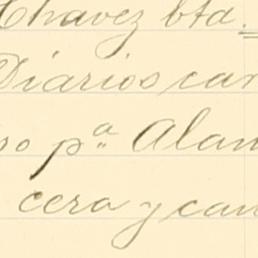 Chavez bta.
Diarios can
so pª Alan
cera y can